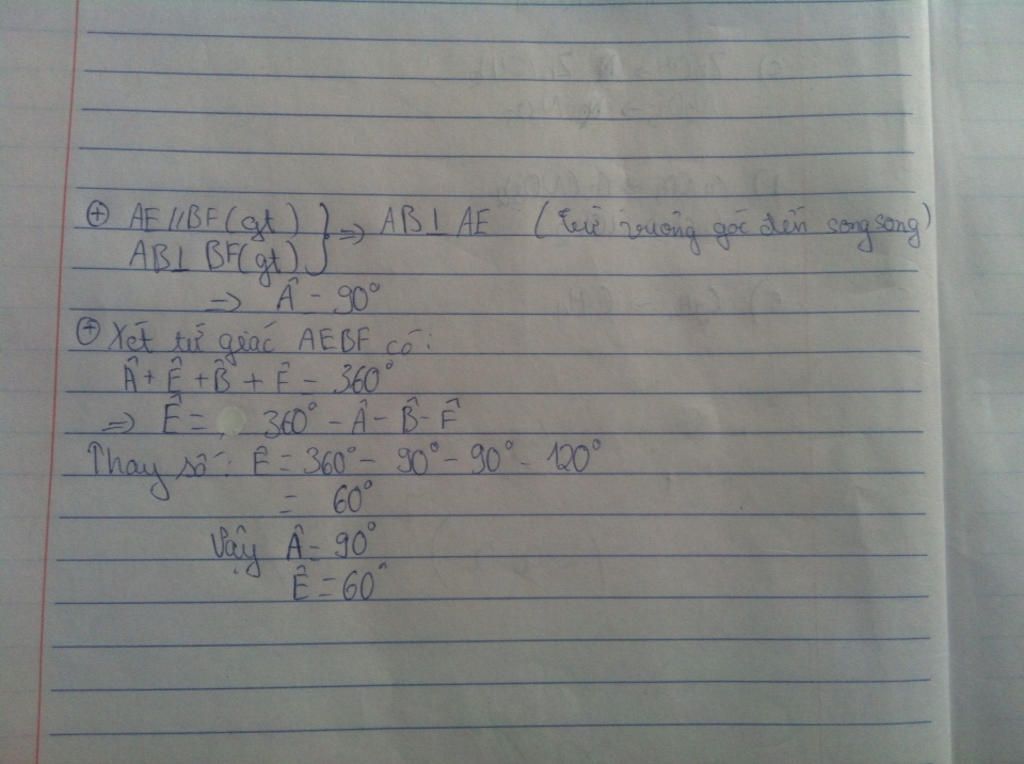 ⊕ AE // BF (gt) } => AB ⊥ AE (từ vuông góc đến song song)
AB ⊥ BF (gt)
=> Â = 90°
⊕ Xét tứ giác AEBF có:
Â + Ê + B̂ + F̂ = 360°
=> Ê = 360° - Â - B̂ - F̂
Thay số: Ê = 360° - 90° - 90° - 120°
= 60°
Vậy Â = 90°
Ê = 60°